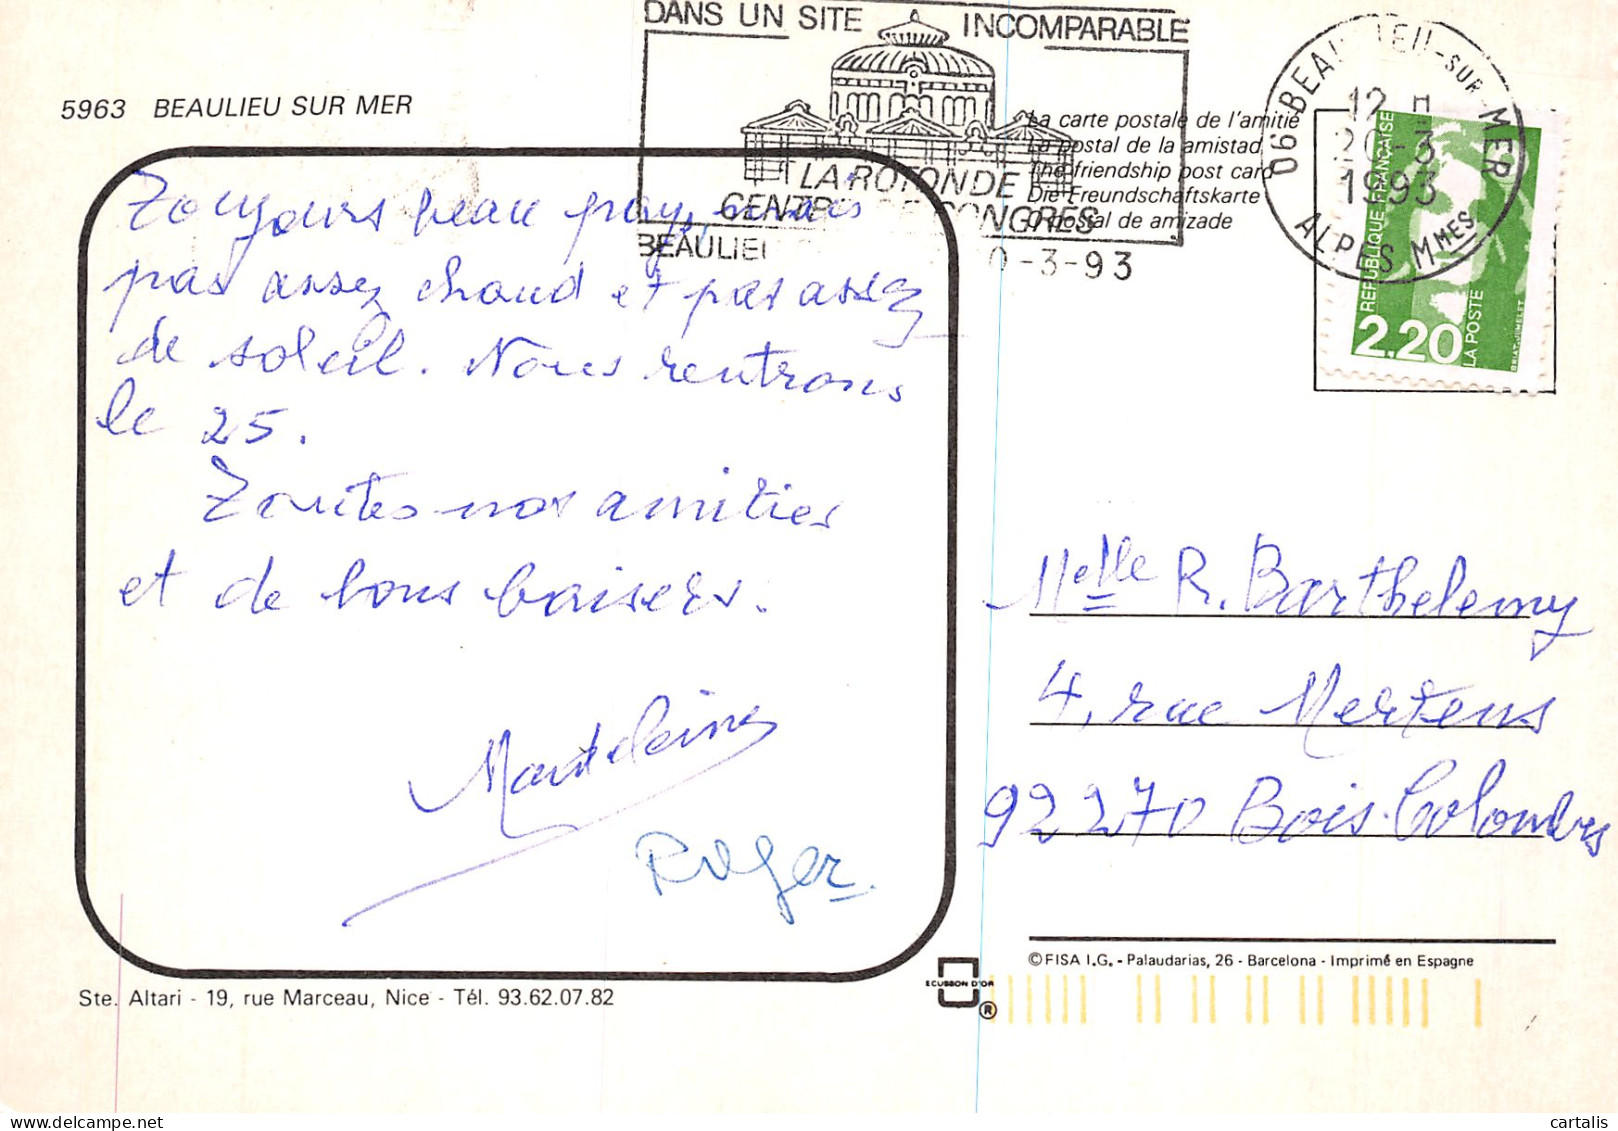 DANS UN SITE INCOMPARABLE
LA ROTONDE
CONGRES
BEAULIEU
-3-93
06 BEAULIEU-SUR-MER
12 H
20-3
1993
ALPES MMES
REPUBLIQUE FRANÇAISE
2.20
LA POSTE
5963 BEAULIEU SUR MER
La carte postale de l'amitié
La postal de la amistad
The friendship post card
Die Freundschaftskarte
O postal de amizade
Toujours beau pays, mais
pas assez chaud et pas assez
de soleil. Nous rentrons
le 25.
Toutes nos amitiés
et de bons baisers.
Madeleine
Roger.
Melle R. Barthelemy
4, rue Mertens
92270 Bois-Colombes
© FISA I.G. - Palaudarias, 26 - Barcelona - Imprimé en Espagne
ECUSSON D'OR
®
Ste. Altari - 19, rue Marceau, Nice - Tél. 93.62.07.82
cartalis